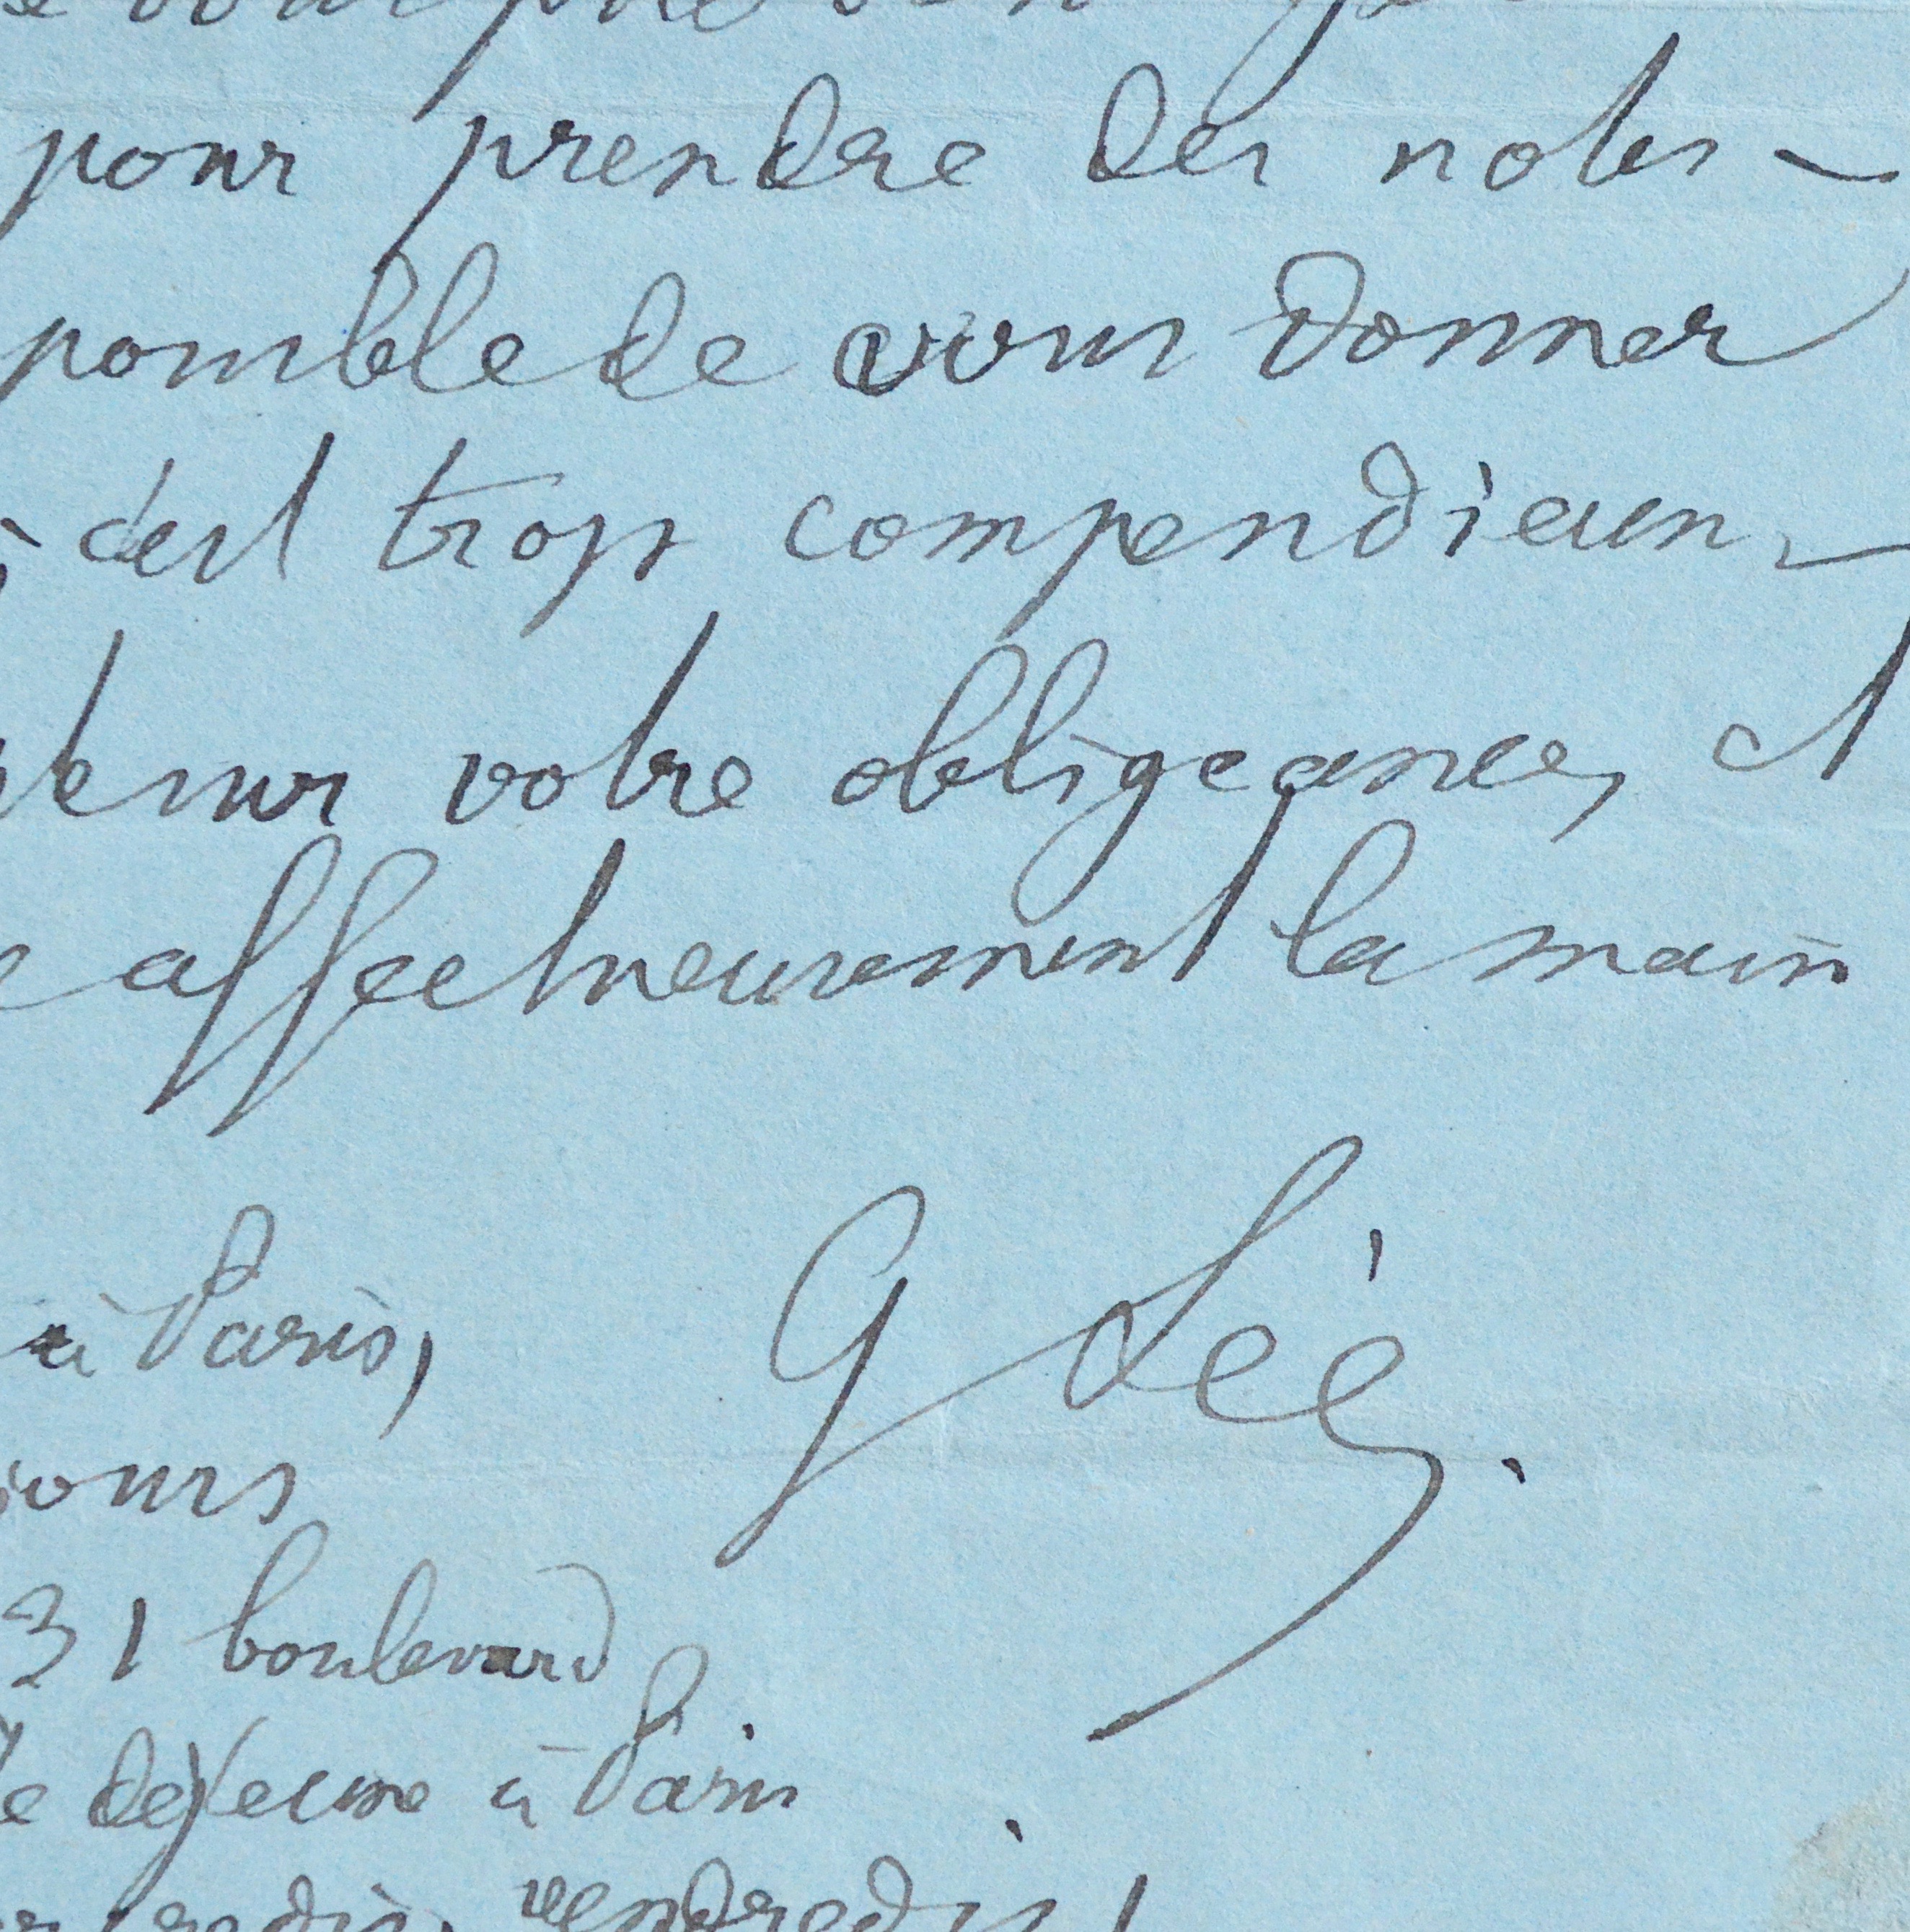 pour prendre des notes -
possible de vous donner
c'est trop compendieux -
sur votre obligeance, et
affectueusement la main
à Paris,
G Sée.
jours
31 boulevard
déjeune à Paris
vendredi